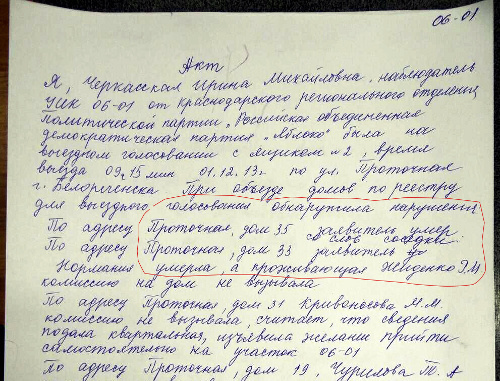 06-01
Акт
Я, Черкасская Ирина Михайловна, наблюдатель
УИК 06-01 от Краснодарского регионального отделения
политической партии "Российская объединенная
демократическая партия "Яблоко" была на
выездном голосовании с ящиком №2, время
выезда 09ч.15мин 01.12.13г. по ул. Проточная
г. Белореченска При объезде домов по реестру
для выездного голосования обнаружила нарушения
По адресу Проточная, дом 35 заявитель умер
со слов соседки.
По адресу Проточная, дом 33 заявитель
умерла, а проживающая
комиссию на дом не вызывала
По адресу Проточная, дом 31 Кривоносова М.М.
комиссию не вызывала, считает, что сведения
подала квартальная, изъявила желание прийти
самостоятельно на участок 06-01
По адресу Проточная, дом 19, Чурилова Т. А